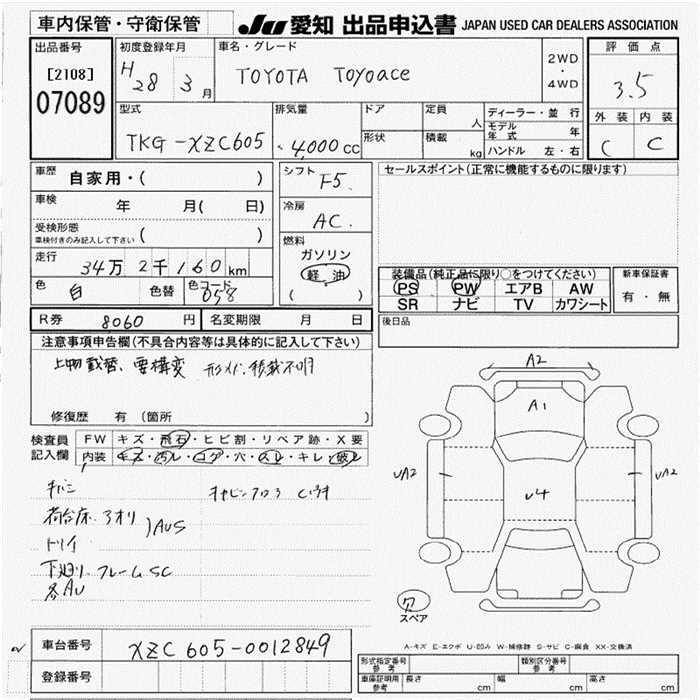 車内保管・守衛保管
JU 愛知 出品申込書 JAPAN USED CAR DEALERS ASSOCIATION
出品番号
[2108]
07089
初度登録年月
H28 3月
車名・グレード
TOYOTA TOYOace
2WD
・
4WD
評価点
3.5
外装 内装
C C
型式
TKG-XZC605
排気量
4,000 cc
ドア
形状
定員 人
積載 kg
ディーラー・並行
モデル年式 年
ハンドル 左・右
車歴 自家用・( )
車検 年 月( 日)
受検形態
車検付きのみ記入して下さい ( )
走行 34万2千160km
色 白 色替 色コード 058
シフト
F5.
冷房
AC.
燃料
ガソリン
軽・油
( )
セールスポイント(正常に機能するものに限ります)
装備品(純正品に限り○をつけてください)
PS PW エアB AW
SR ナビ TV カワシート
新車保証書
有・無
後日品
R券 8060 円 名変期限 月 日
注意事項申告欄(不具合内容等は具体的に記入して下さい)
上物載替、要構変
修復歴 有(箇所 )
検査員
記入欄
FW キズ・飛石・ヒビ割・リペア跡・X要
内装 キズ・汚レ・コゲ・穴・スレ・キレ・破レ
キバミ
荷台床.アオリ
)AUS
トリイ
下廻リ.フレームSC
各AU
A2
A1
UA2
UA2
U4
穴
スペア
A-キズ E-エクボ U-凹み W-補修跡 S-サビ C-腐食 XX-交換済
車台番号 XZC605-0012849
登録番号
型式指定番号
参考
類別区分番号
参考
車庫証明用
参考
長さ cm 幅 cm 高さ cm